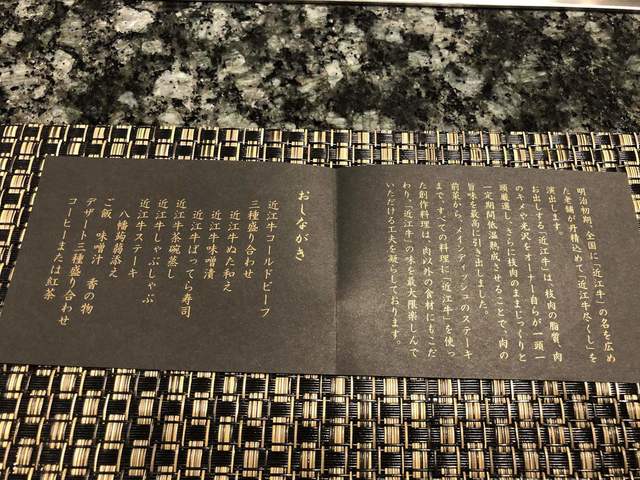 明治初期、全国に「近江牛」の名を広め
た老舗が丹精込めて「近江牛尽くし」を
演出します。
お出しする「近江牛」は、枝肉の脂質、肉
のキメや光沢をオーナー自らが一頭一
頭厳選し、さらに枝肉のままじっくりと
一定期間低温熟成させることで、肉の
旨味を最高に引き出しました。
前菜から、メインディッシュのステーキ
まで、すべての料理に「近江牛」を使っ
た創作料理は、肉以外の食材にもこだ
わり、「近江牛」の味を最大限楽しんで
いただける工夫を凝らしております。
おしながき
近江牛コールドビーフ
三種盛り合わせ
近江牛ぬた和え
近江牛味噌漬
近江牛ばってら寿司
近江牛茶碗蒸し
近江牛しゃぶしゃぶ
近江牛ステーキ
八幡蒟蒻添え
ご飯 味噌汁 香の物
デザート三種盛り合わせ
コーヒーまたは紅茶